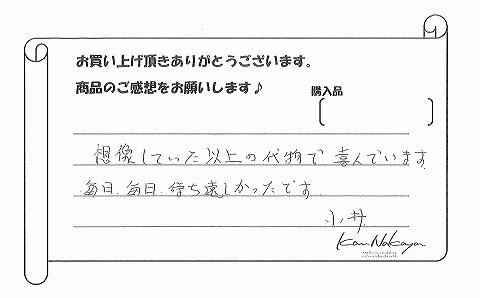 お買い上げ頂きありがとうございます。
商品のご感想をお願いします♪
購入品
想像していた以上の代物で喜んでいます
毎日、毎日、待ち遠しかったです
小井
Kan Nakaya